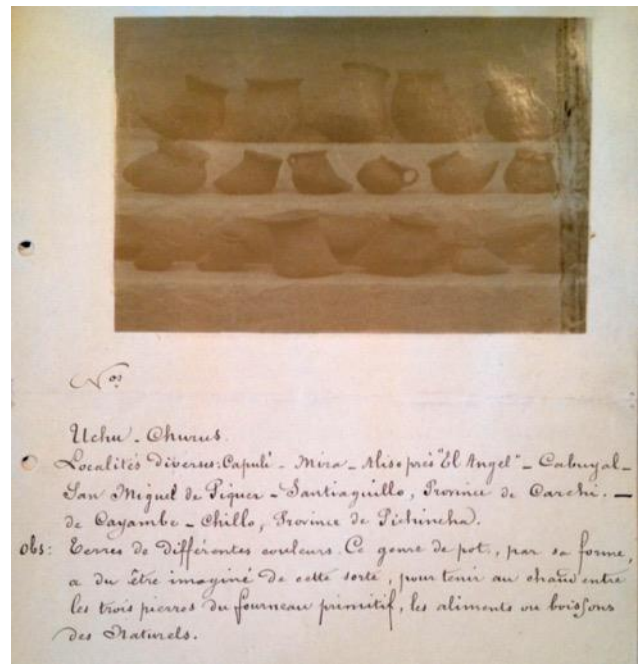 Nos
Uchu-Churus.
Localités diverses: Capuli - Mira - Aliso près "El Angel" - Cabuyal -
San Miguel de Piquer - Santiaguillo, Province de Carchi. -
de Cayambe - Chillo, Province de Pichincha).
obs: Terres de différentes couleurs. Ce genre de pot, par sa forme,
a du être imaginé de cette sorte, pour tenir au chaud entre
les trois pierres du fourneau primitif, les aliments ou boissons
des Naturels.